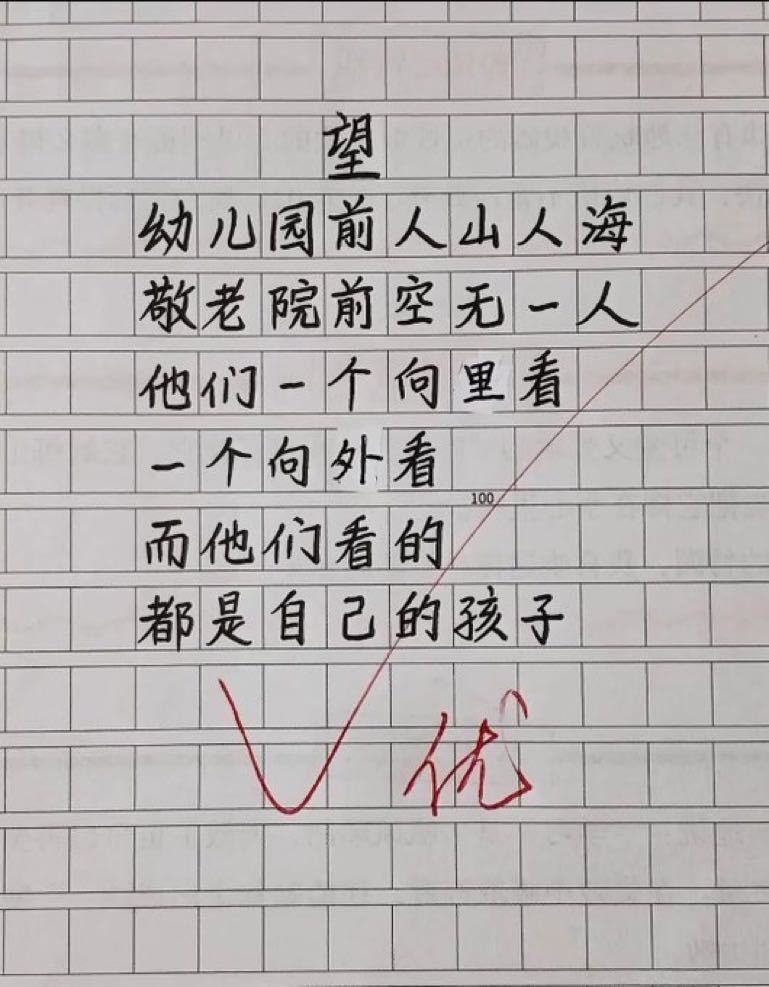 望
幼儿园前人山人海
敬老院前空无一人
他们一个向里看
一个向外看
100
而他们看的
都是自己的孩子
优